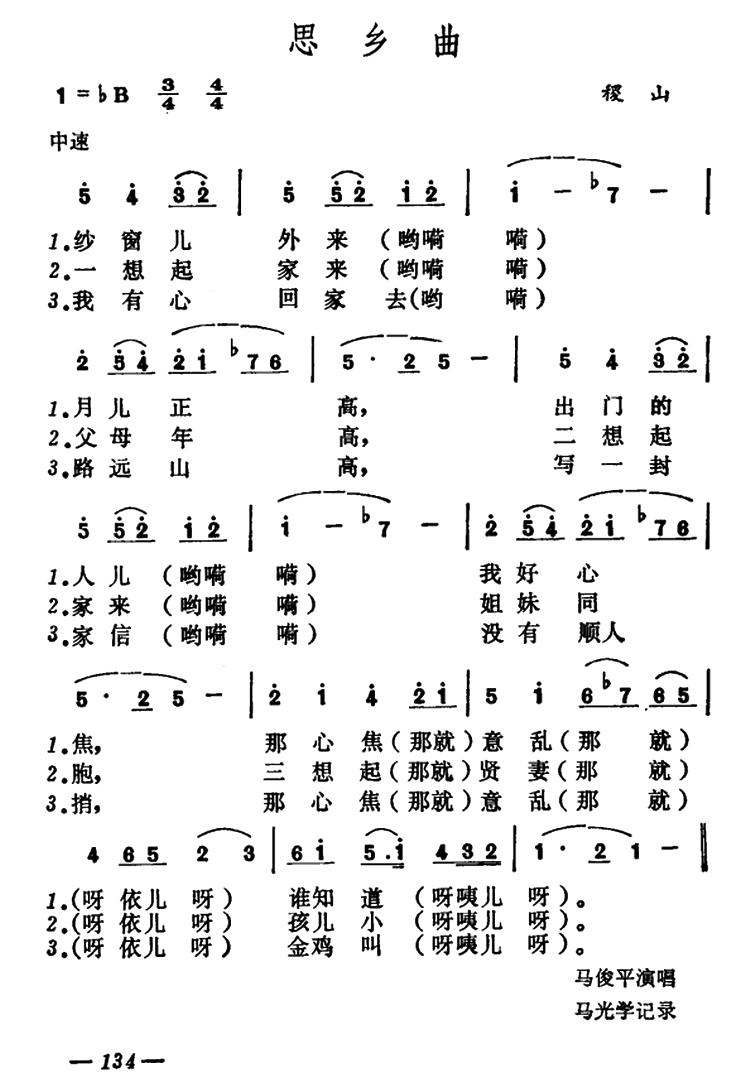 思乡曲
1=♭B 3/4 4/4 稷山
中速
5̇ 4̇ 3̇2̇ | 5̇ 5̇2̇ 1̇2̇ | 1̇ — ♭7 — |
1.纱窗儿 外来(哟嗬 嗬)
2.一想起 家来(哟嗬 嗬)
3.我有心 回家去(哟 嗬)
2̇ 5̇4̇ 2̇1̇ ♭76 | 5· 2 5 — | 5̇ 4̇ 3̇2̇ |
1.月儿正 高, 出门的
2.父母年 高, 二想起
3.路远山 高, 写一封
5̇ 5̇2̇ 1̇2̇ | 1̇ — ♭7 — | 2̇ 5̇4̇ 2̇1̇ ♭76 |
1.人儿(哟嗬 嗬) 我好心
2.家来(哟嗬 嗬) 姐妹同
3.家信(哟嗬 嗬) 没有顺人
5· 2 5 — | 2̇ 1̇ 4̇ 2̇1̇ | 5 1̇ 6♭7 65 |
1.焦, 那心焦(那就)意乱(那 就)
2.胞, 三想起(那就)贤妻(那 就)
3.捎, 那心焦(那就)意乱(那 就)
4 65 2 3 | 61̇ 5.1̇ 432 | 1· 2 1 — ‖
1.(呀依儿呀) 谁知道(呀咦儿呀)。
2.(呀依儿呀) 孩儿小(呀咦儿呀)。
3.(呀依儿呀) 金鸡叫(呀咦儿呀)。
马俊平演唱
马光学记录
— 134 —